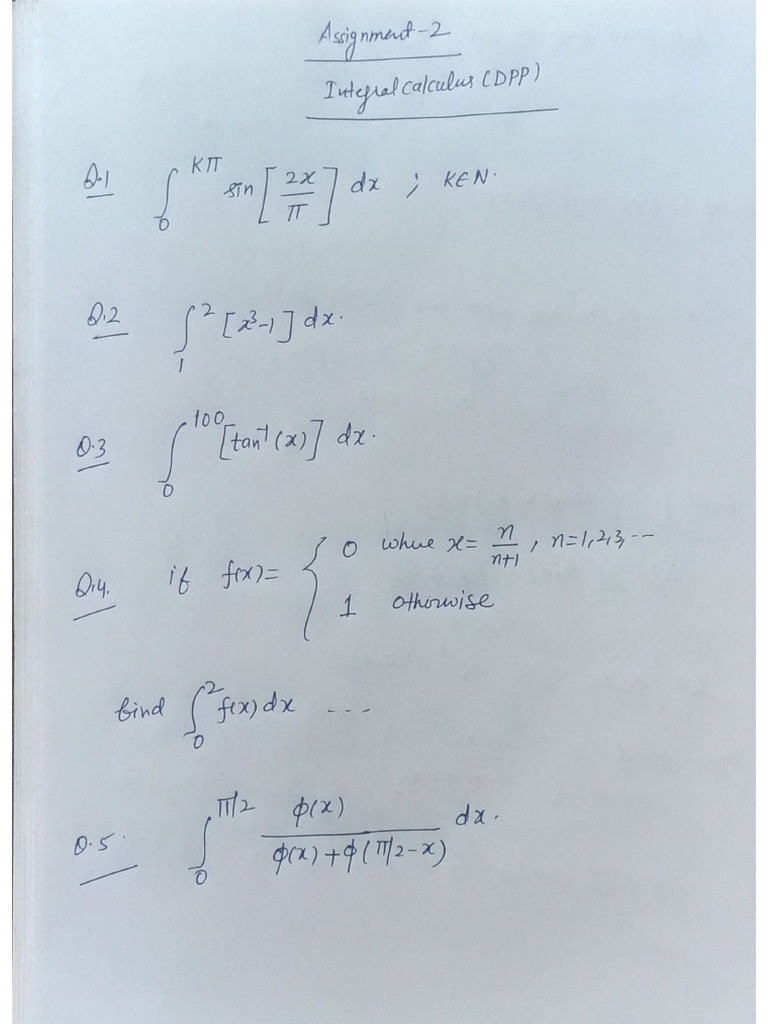 Assignment-2
Integral Calculus (DPP)
Q.1 ∫₀^{Kπ} sin [2x/π] dx ; K∈N.
Q.2 ∫₁² [x³-1] dx.
Q.3 ∫₀^{100} [tan⁻¹(x)] dx.
Q.4. if f(x)= { 0 where x= n/(n+1), n=1,2,3,--
1 otherwise
find ∫₀² f(x) dx ---
Q.5. ∫₀^{π/2} ϕ(x)/(ϕ(x)+ϕ(π/2-x)) dx.